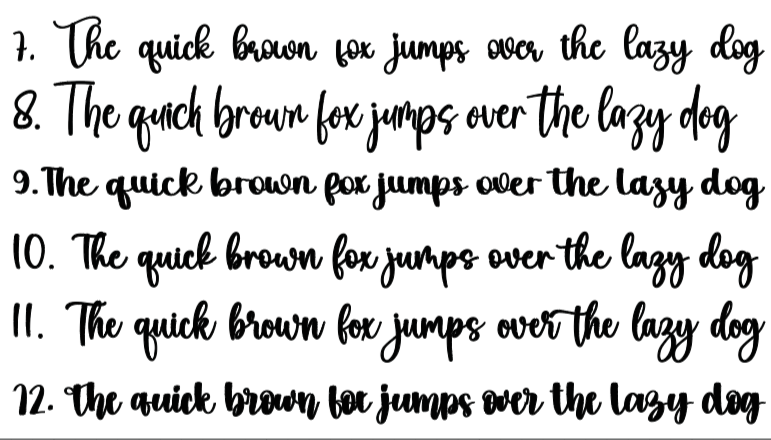 7. The quick brown fox jumps over the lazy dog
8. The quick brown fox jumps over the lazy dog
9. The quick brown fox jumps over the lazy dog
10. The quick brown fox jumps over the lazy dog
11. The quick brown fox jumps over the lazy dog
12. The quick brown fox jumps over the lazy dog